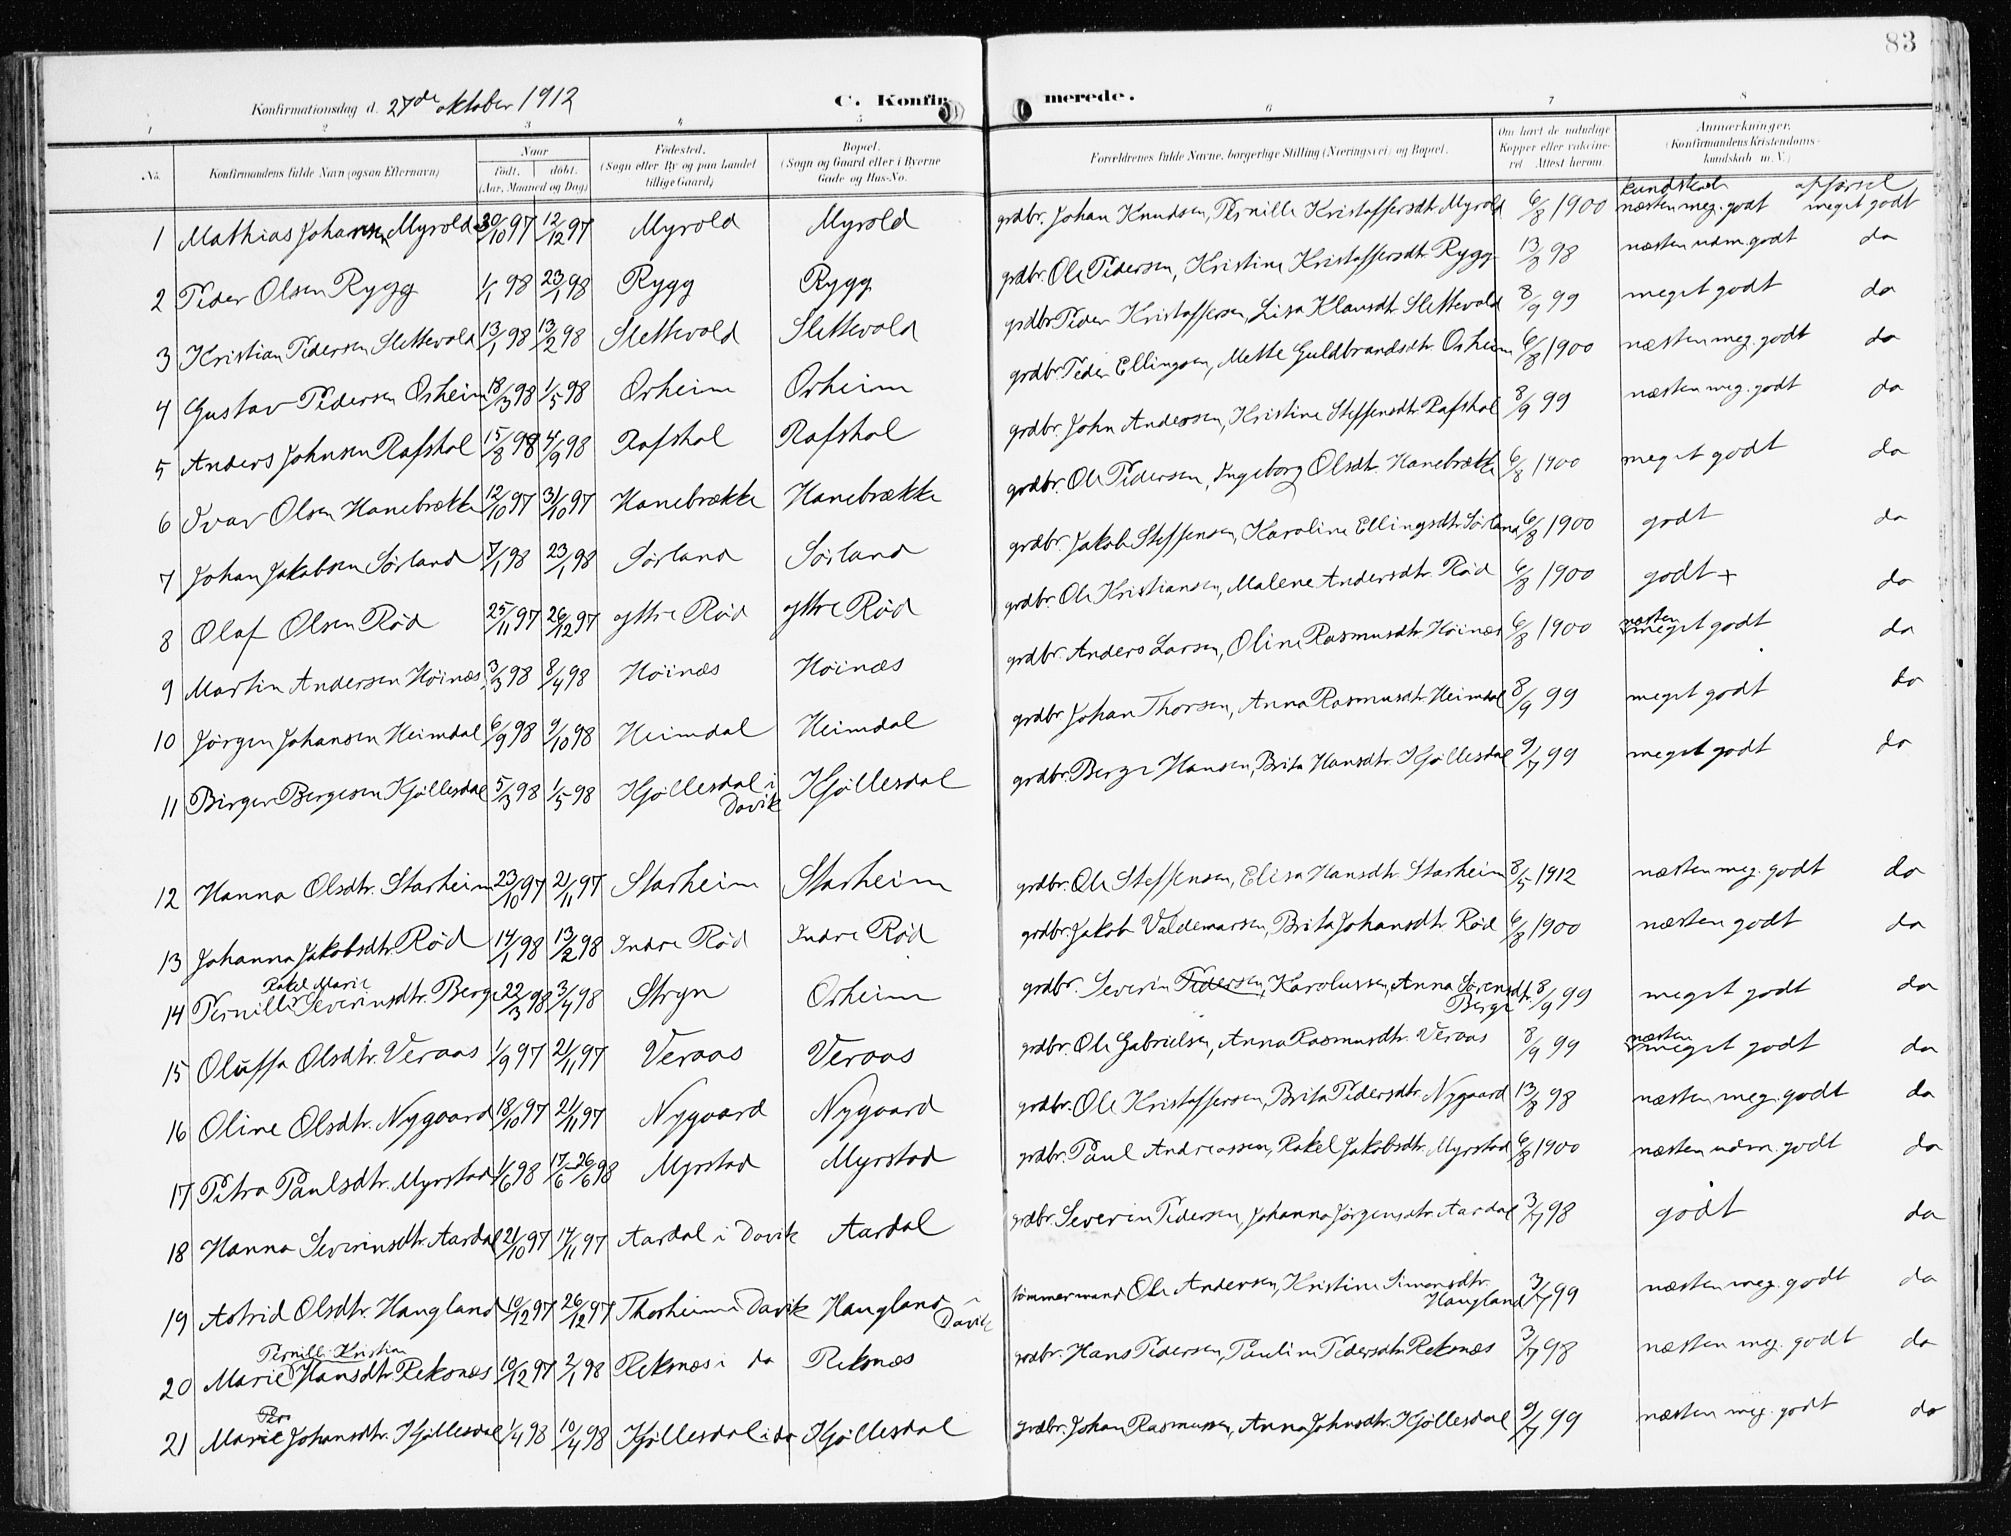 83
Konfirmationsdag d. 27de oktober 1912 C. Konfirmerede.
1 2 3 4 5 6 7 8
No. Konfirmandens fulde Navn (ogsaa Efternavn) Naar Födt. döbt. (Aar, Maaned og Dag) Födested. (Sogn eller By og paa Landet tillige Gaard) Bopæl. (Sogn og Gaard eller i Byerne Gade og Hus-No. Forældrenes fulde Navne, borgerlige Stilling (Næringsvei) og Bopæl. Om havt de naturlige Kopper eller vaccineret. Attest herom. Anmerkninger. (Konfirmandens Kristendomskundskab m. V.)
kundskab opførsel
1 Mathias Johansen Myrold 30/10 97 12/12 97 Myrold Myrold grdbr. Johan Knudsen, Pernille Kristoffersdtr. Myrold 6/8 1900 næsten meg. godt meget godt
2 Peder Olsen Rygg 1/1 98 23/1 98 Rygg Rygg grdbr. Ole Pedersen, Kristine Kristoffersdtr. Rygg 13/8 98 næsten udm. godt do
3 Kristian Pedersen Slettevold 13/1 98 13/2 98 Slettevold Slettevold grdbr. Peder Kristoffersen, Lisa Klausdtr. Slettevold 8/9 99 meget godt do
4 Gustav Pedersen Orheim 18/3 98 1/5 98 Orheim Orheim grdbr. Peder Ellingsen, Mette Guldbrandsdtr. Orheim 6/8 1900 næsten meg. godt do
5 Anders Johnsen Rafshol 15/8 98 4/9 98 Rafshol Rafshol grdbr. John Andersen, Kristine Steffensdtr. Rafshol 8/9 99 næsten meg. godt do
6 Ivar Olsen Hanebrække 12/10 97 31/10 97 Hanebrække Hanebrække grdbr. Ole Pedersen, Ingeborg Olsdtr. Hanebrække 6/8 1900 meget godt do
7 Johan Jakobsen Sørland 7/1 98 23/1 98 Sørland Sørland grdbr. Jakob Steffensen, Karoline Ellingsdtr. Sørland 6/8 1900 godt do
8 Olaf Olsen Rød 25/11 97 26/12 97 yttre Rød yttre Rød grdbr. Ole Kristiansen, Malene Andersdtr. Rød 6/8 1900 godt + do
9 Martin Andersen Høinæs 3/3 98 8/4 98 Høinæs Høinæs grdbr. Anders Larsen, Oline Rasmusdtr. Høinæs 6/8 1900 næsten meget godt do
10 Jørgen Johansen Heimdal 6/9 98 9/10 98 Heimdal Heimdal grdbr. Johan Thorsen, Anna Rasmusdtr. Heimdal 8/9 99 meget godt do
11 Birger Bergesen Kjøllesdal 5/3 98 1/5 98 Kjøllesdal i Davik Kjøllesdal grdbr. Berge Hansen, Brita Hansdtr. Kjøllesdal 9/7 99 meget godt do
12 Hanna Olsdtr. Starheim 23/10 97 21/11 97 Starheim Starheim grdbr. Ole Steffensen, Elisa Hansdtr. Starheim 8/5 1912 næsten meg. godt do
13 Johanna Jakobsdtr. Rød 14/1 98 13/2 98 Indre Rød Indre Rød grdbr. Jakob Valdemarsen, Brita Johansdtr. Rød 6/8 1900 næsten godt do
14 Pernille Rakel Marie Severinsdtr. Berge 22/3 98 3/4 98 Stryn Orheim grdbr. Severin Pedersen, Karolussen, Anna Sørensdtr. Berge 8/9 99 meget godt do
15 Oluffa Olsdtr. Veraas 1/9 97 21/11 97 Veraas Veraas grdbr. Ole Gabrielsen, Anna Rasmusdtr. Veraas 8/9 99 næsten meget godt do
16 Oline Olsdtr. Nygaard 18/10 97 21/11 97 Nygaard Nygaard grdbr. Ole Kristoffersen, Brita Pedersdtr. Nygaard 13/8 98 næsten meg. godt do
17 Petra Paulsdtr. Myrstad 1/6 98 17/6-26/6 98 Myrstad Myrstad grdbr. Paul Andreassen, Rakel Jakobsdtr. Myrstad 6/8 1900 næsten udm. godt do
18 Hanna Severinsdtr. Aardal 21/10 97 14/11 97 Aardal i Davik Aardal grdbr. Severin Pedersen, Johanna Jørgensdtr. Aardal 3/7 98 godt do
19 Astrid Olsdtr. Haugland 10/12 97 26/12 97 Thorheim i Davik Haugland i Davik tømmermand Ole Andersen, Kristine Simonsdtr. Haugland 3/7 99 næsten meg. godt do
20 Marie Pernille Kristine Hansdtr. Reksnæs 10/12 97 2/1 98 Reksnæs i do Reksnæs grdbr. Hans Pedersen, Pauline Pedersdtr. Reksnæs 3/7 98 næsten meg. godt do
21 Marie Johansdtr. Kjøllesdal 1/4 98 10/4 98 Kjøllesdal i do Kjøllesdal grdbr. Johan Rasmussen, Anna Johnsdtr. Kjøllesdal 9/7 99 næsten meg. godt do